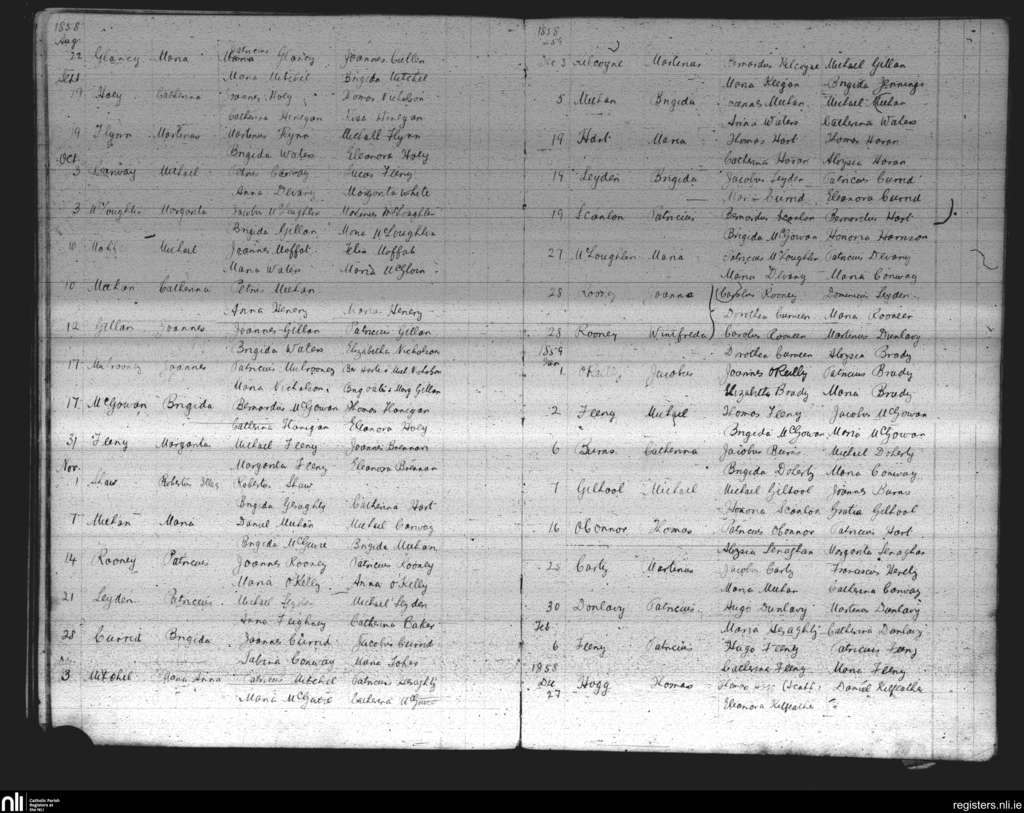 1858
Aug
22 Glancy Maria Patricius Glancy Joannes Cullen
Maria Mitchel Brigida Mitchel
Sept
19 Hoey Catherina Joannes Hoey Thomas Nicholson
Catherina Henegan Rosa Henegan
19 Flynn Martinus Martinus Flynn Michall Flynn
Brigida Waters Eleonora Hoey
Oct
3 Conway Michael Petrus Conway Lucas Feeny
Anna Devany Margarita White
3 McLoughlin Margarita Jacobus McLoughlin Martinus McLoughlin
Brigida Gillan Maria McLoughlin
10 Michael Joannes Moffat Moffat
Maria Waters Maria McGloin
10 Meehan Catherina Petrus Meehan
Anna Henery Maria Henery
12 Gillan Joannes Joannes Gillan Patricius Gillan
Brigida Waters Elizabetha Nicholson
17 Mulrooney Joannes Patricius Mulrooney Nicholson
Maria Nicholson Gillan
17 McGowan Brigida Bernardus McGowan Thomas Hanigan
Catherina Hanigan Eleanora Hoey
31 Feeny Margarita Michael Feeny Joannes Brennan
Margarita Feeny Eleanora Brennan
Nov.
1 Shaw Robertus Robertus Shaw
Brigida Geraghty Catherina Hart
7 Meehan Maria Daniel Meehan Michael Conway
Brigida McGuire Brigida Meehan
14 Rooney Patricius Joannes Rooney Patricius Rooney
Maria O'Kelly Anna O'Kelly
21 Leyden Patricius Michael Leyden Michael Leyden
Anna Feighney Catherina Baker
28 Currid Brigida Joannes Currid Jacobus Currid
Sabina Conway Maria
3 Mitchel Maria Anna Patricius Mitchel Patricius Geraghty
Maria McGuire Catherina McGuire
1858
Dec 3 Kilcoyne Martinus Bernardus Kilcoyne Michael Gillan
Maria Keegan Brigida Jennings
5 Meehan Brigida Joannes Meehan Michael Meehan
Anna Waters Catherina Waters
19 Hart Maria Thomas Hart Thomas Horan
Catherina Horan Aloysia Horan
19 Leyden Brigida Jacobus Leyden Patricius Currid
Maria Currid Eleanora Currid
19 Scanlon Patricius Bernardus Scanlon Bernardus Hart
Brigida McGowan Honoria Harrison
27 McLoughlin Maria Patricius McLoughlin Patricius Devany
Maria Devany Maria Conway
28 Rooney Joanna Carolus Rooney Dominicus Leyden
Dorothea Curreen Maria Rooneen
28 Rooney Winifreda Carolus Rooneen Martinus Dunlavy
Dorothea Curreen Aloysia Brady
1859
Jan
1 O'Reilly Jacobus Joannes O'Reilly Patricius Brady
Elizabetha Brady Maria Brady
2 Feeny Michael Thomas Feeny Jacobus McGowan
Brigida McGowan Maria McGowan
6 Burns Catherina Jacobus Burns Michael Doherty
Brigida Doherty Maria Conway
7 Gilhool Michael Michael Gilhool Joannes Burns
Honoria Scanlon Gratia Gilhool
16 O'Connor Thomas Patricius O'Connor Patricius Hart
Aloysia Lenaghan Margarita Lenaghan
23 Carty Martinus Jacobus Carty Franciscus
Maria Meehan Catherina Conway
30 Donlavy Patricius Hugo Dunlavy Martinus Dunlavy
Maria Geraghty Catherina Dunlavy
Feb
6 Feeny Patricius Hugo Feeny Patricius Feeny
Catherina Feeny Maria Feeny
1858
Dec
27 Hogg Thomas Thomas Hogg Daniel Kilfeather
Eleanora Kilfeather
nli Catholic Parish
Registers at
the NLI
registers.nli.ie